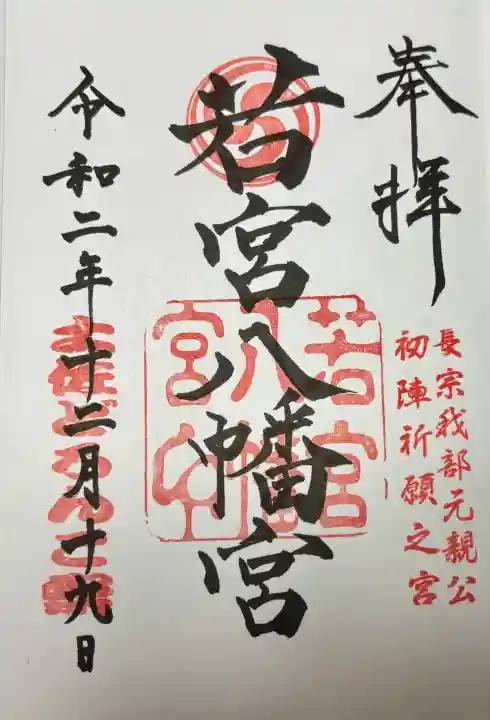 奉拝
長宗我部元親公
初陣祈願之宮
若宮八幡宮
若宮
八幡
宮
令和二年十二月十九日